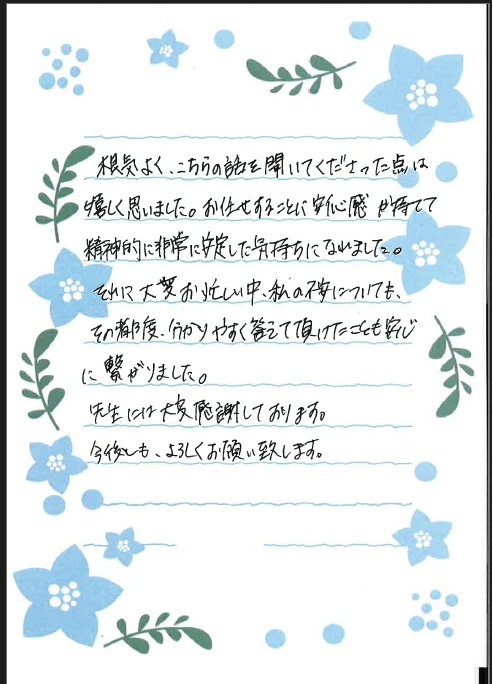 根気よく、こちらの話を聞いてくださった点は
嬉しく思いました。お任せすることに安心感が持てて
精神的に非常に安定した気持ちになれました。
それに大変お忙しい中、私の不安についても、
その都度、分かりやすく答えて頂けたことも安心
に繋がりました。
先生には大変感謝しております。
今後とも、よろしくお願い致します。